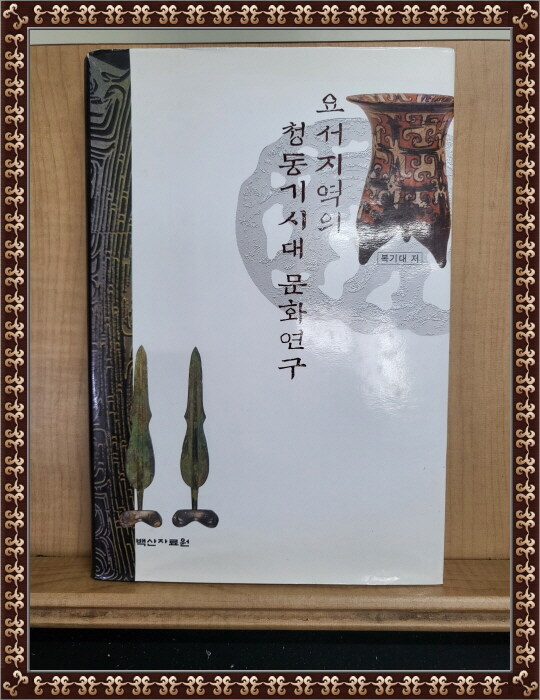 요서지역의
청동기시대 문화연구
복기대 저
백산자료원